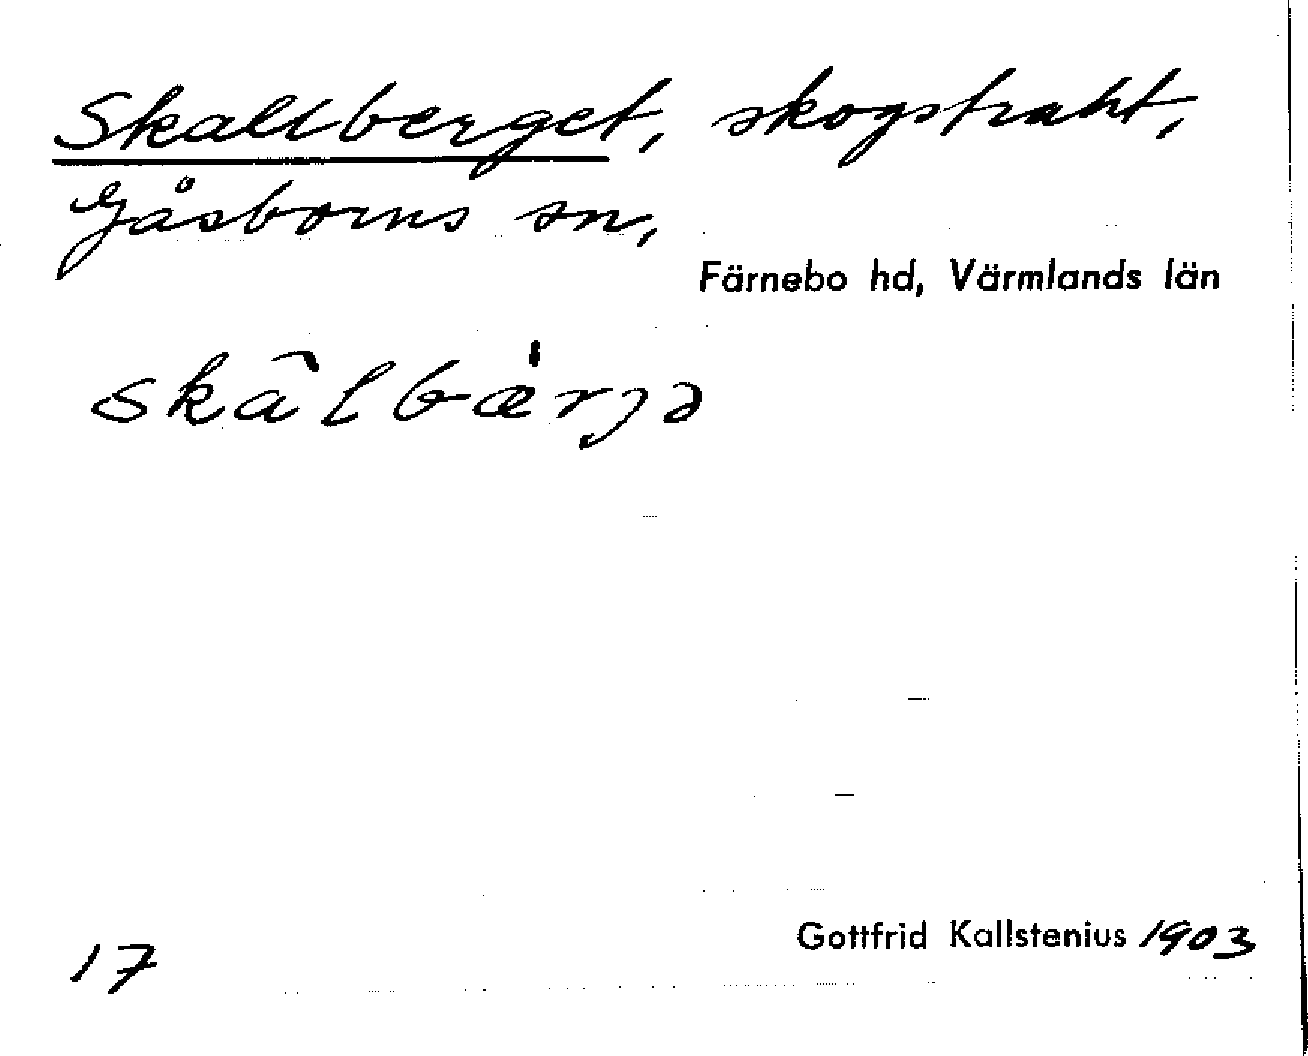 Skallberget, skogstrakt,
Gåsborns sn,
Färnebo hd, Värmlands län
skâlbæ̀rjə
17
Gottfrid Kallstenius 1903